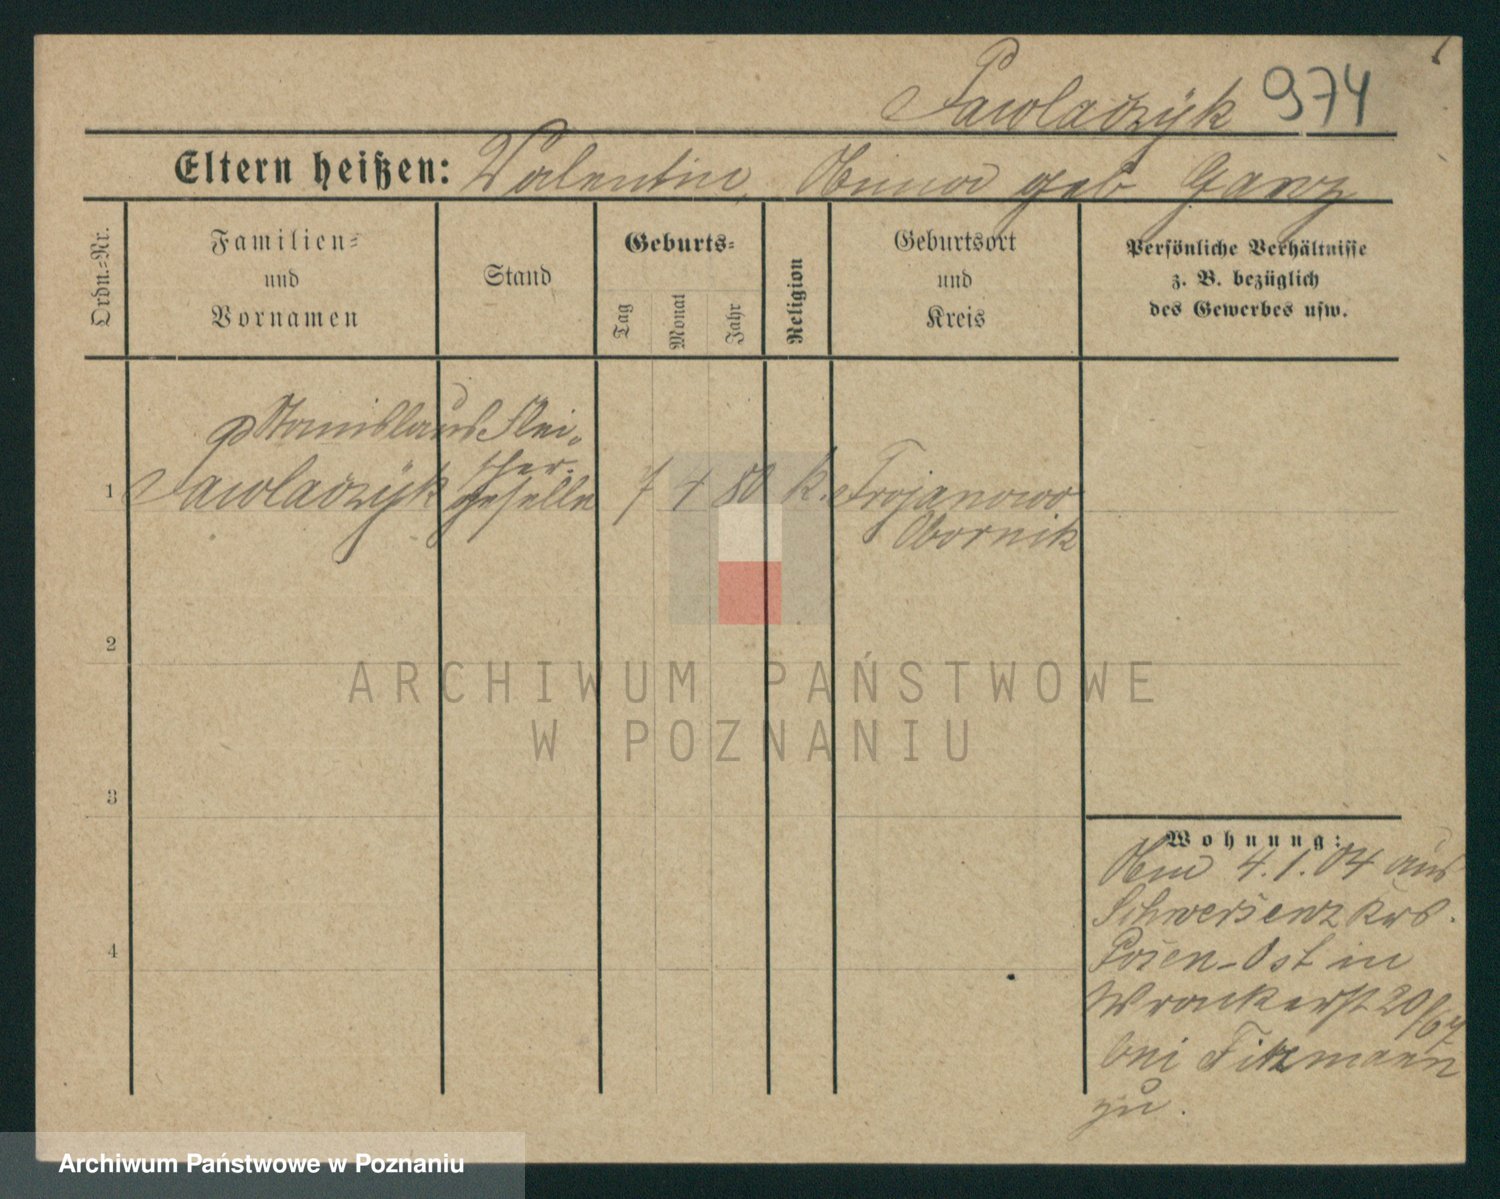 Pawlaczyk 974
Eltern heißen: Valentin, Anna geb Ganz
Ordn.=Nr.
Familien=
und
Vornamen
Stand
Geburts=
Tag
Monat
Jahr
Religion
Geburtsort
und
Kreis
Persönliche Verhältnisse
z. B. bezüglich
des Gewerbes usw.
Stanislaus Flei-
scher-
1 Pawlaczyk geselle 7 4 80 K. Trojanowo
Obornik
2
3
4
Wohnung:
Am 4.1.04 aus
Schwersenz Krs.
Posen-Ost in
Wronkerst 20/
bei Fitzmann
zu.
ARCHIWUM PAŃSTWOWE
W POZNANIU
Archiwum Państwowe w Poznaniu